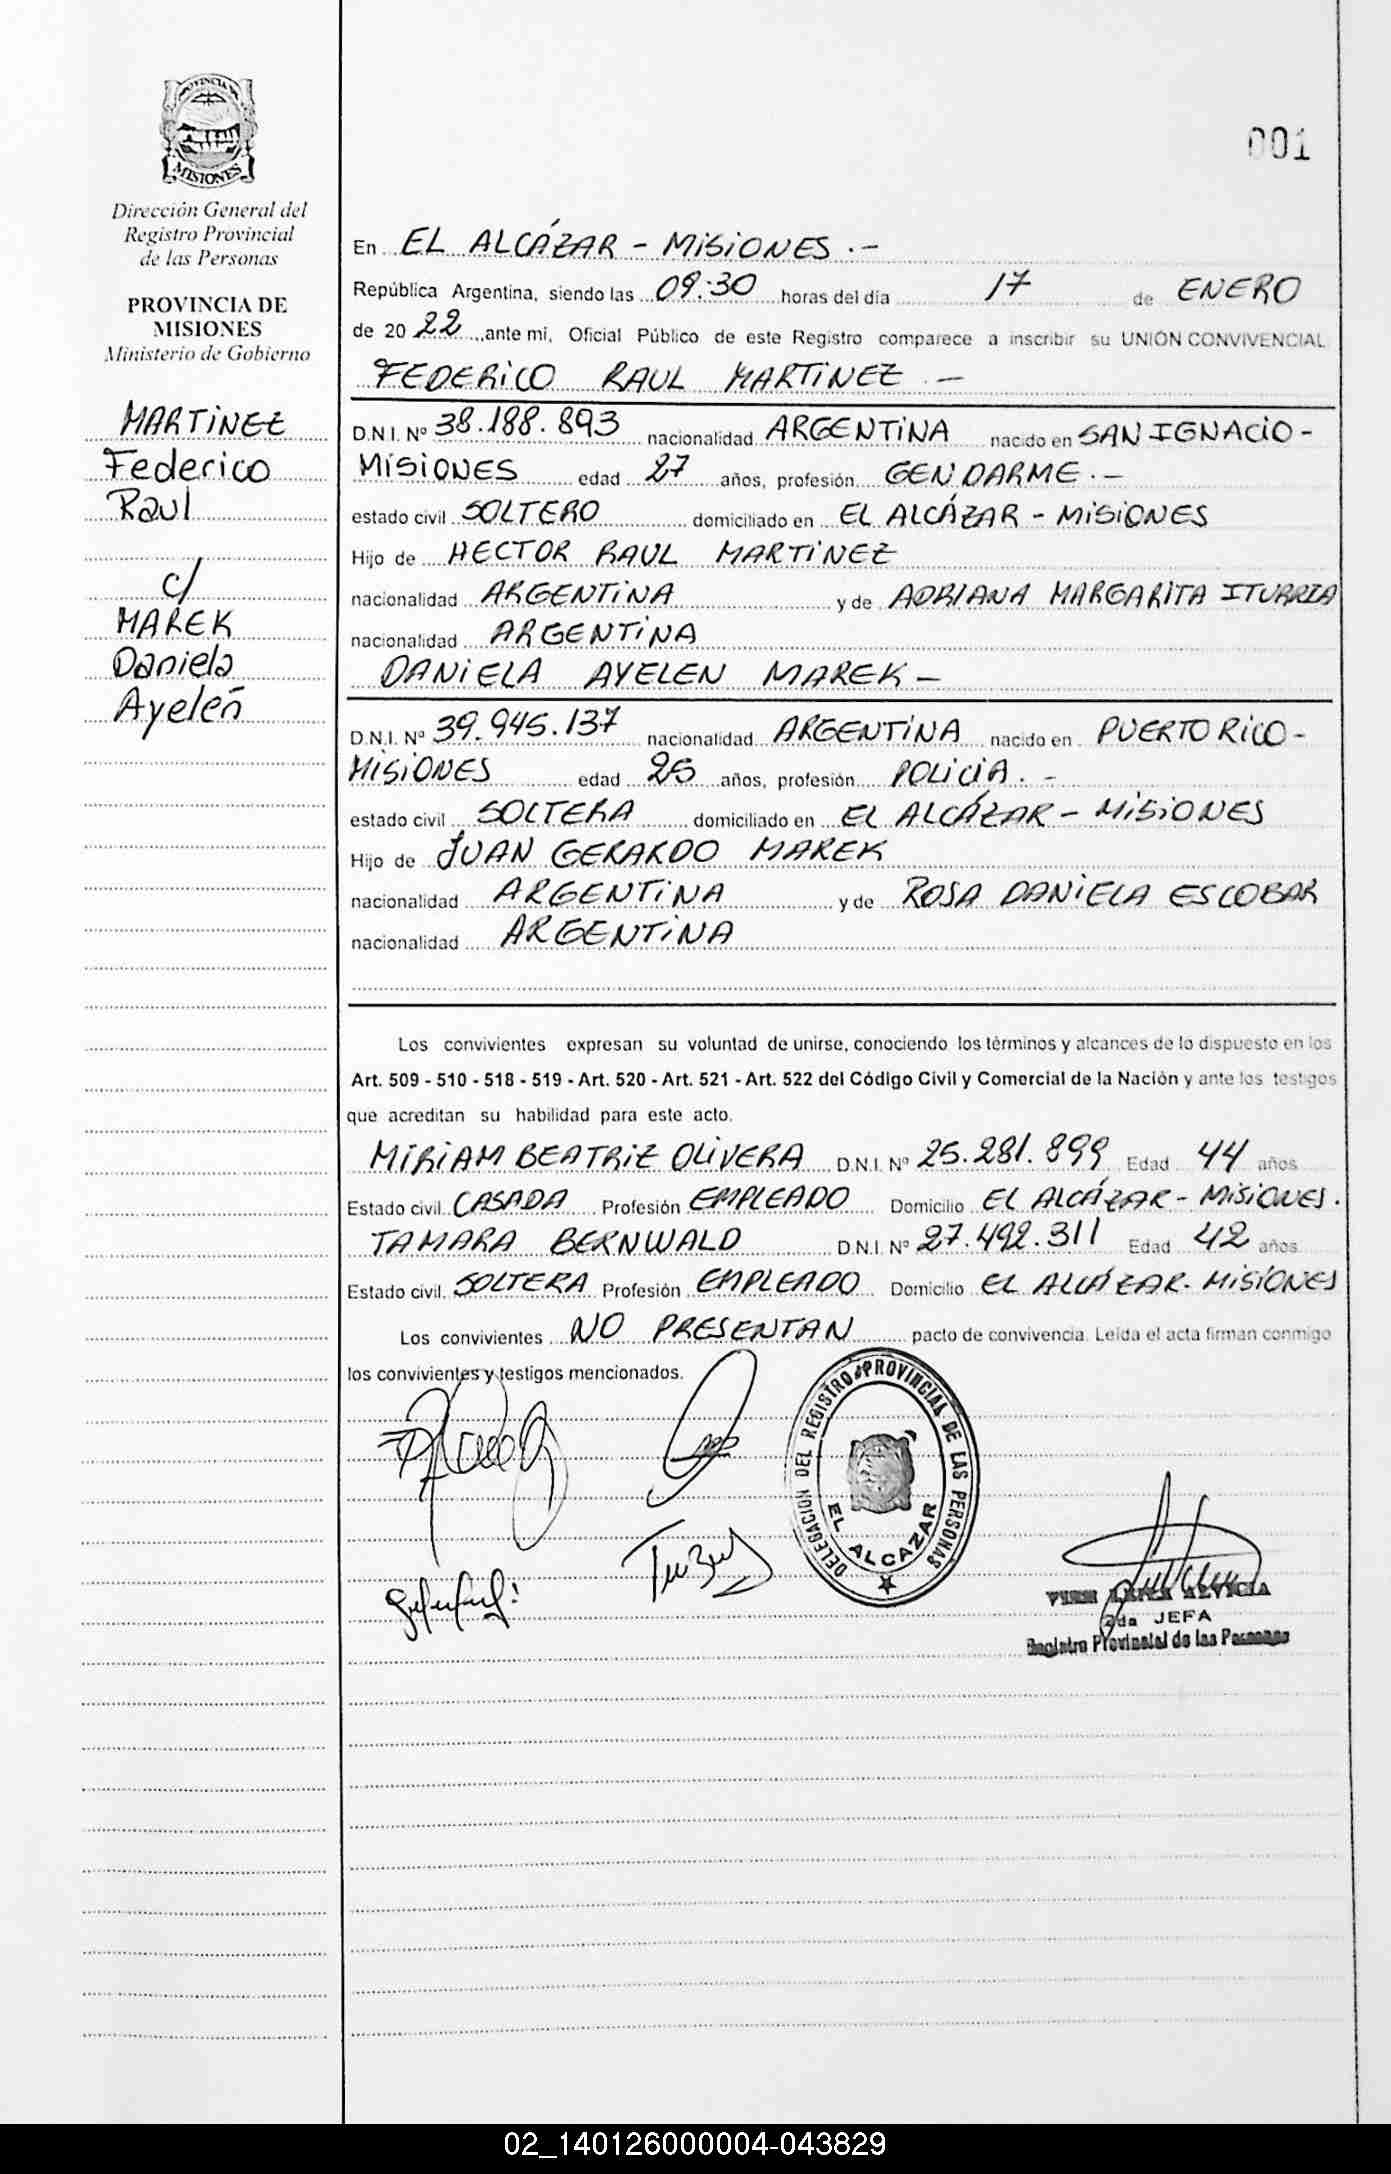 PROVINCIA DE
MISIONES
Dirección General del
Registro Provincial
de las Personas
PROVINCIA DE
MISIONES
Ministerio de Gobierno
MARTINEZ
Federico
Raul
c/
MAREK
Daniela
Ayelén
001
En EL ALCÁZAR - MISIONES .-
República Argentina, siendo las 09:30 horas del día 17 de ENERO
de 20 22 ante mi, Oficial Público de este Registro comparece a inscribir su UNION CONVIVENCIAL
FEDERICO RAUL MARTINEZ .-
D.N.I. Nº 38.188.893 nacionalidad ARGENTINA nacido en SAN IGNACIO -
MISIONES edad 27 años, profesión GENDARME .-
estado civil SOLTERO domiciliado en EL ALCÁZAR - MISIONES
Hijo de HECTOR RAUL MARTINEZ
nacionalidad ARGENTINA y de ADRIANA MARGARITA ITURRIA
nacionalidad ARGENTINA
DANIELA AYELEN MAREK -
D.N.I. Nº 39.945.137 nacionalidad ARGENTINA nacido en PUERTO RICO -
MISIONES edad 25 años, profesión POLICIA . -
estado civil SOLTERA domiciliado en EL ALCÁZAR - MISIONES
Hijo de JUAN GERARDO MAREK
nacionalidad ARGENTINA y de ROSA DANIELA ESCOBAR
nacionalidad ARGENTINA
Los convivientes expresan su voluntad de unirse, conociendo los términos y alcances de lo dispuesto en los
Art. 509 - 510 - 518 - 519 - Art. 520 - Art. 521 - Art. 522 del Código Civil y Comercial de la Nación y ante los testigos
que acreditan su habilidad para este acto.
MIRIAM BEATRIZ OLIVERA D.N.I. Nº 25.281.899 Edad 44 años
Estado civil. CASADA Profesión EMPLEADO Domicilio EL ALCÁZAR - MISIONES.
TAMARA BERNWALD D.N.I. Nº 27.492.311 Edad 42 años
Estado civil. SOLTERA Profesión EMPLEADO Domicilio EL ALCÁZAR - MISIONES
Los convivientes NO PRESENTAN pacto de convivencia. Leída el acta firman conmigo
los convivientes y testigos mencionados.
DELEGACION DEL REGISTRO PROVINCIAL DE LAS PERSONAS
EL ALCAZAR
2da JEFA
Registro Provincial de las Personas
02_140126000004-043829